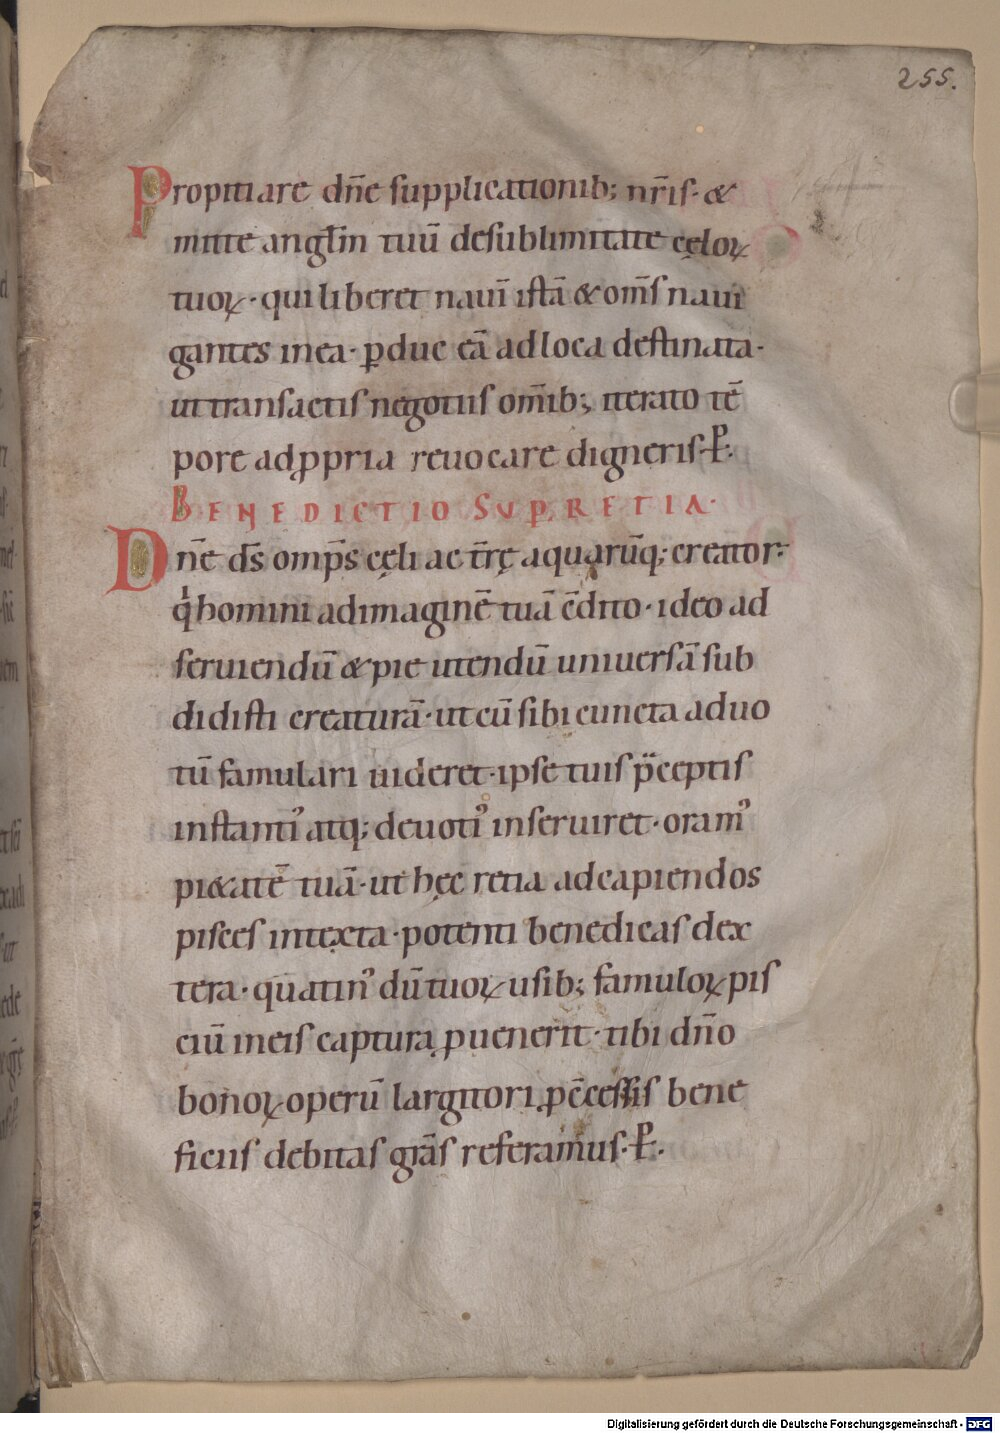 255.
Propitiare dn̄e supplicationib; nr̄is· &
mitte angl̄m tuū desublimitate cęloꝝ
tuoꝝ· qui liberet nauī istā & om̄s naui
gantes inea· ꝑduc eā adloca destinata·
uttransactis negotiis om̄ib; iterato tē
pore adꝓpria reuocare digneris· ꝑ·
BENEDICTIO SUPER RETIA·
Dn̄e ds̄ omp̄s cęli ac tr̄rę aquarūq; creator·
qͥ homini adimaginē tuā c̄dito· ideo ad
seruiendū & pie utendū uniuersā sub
didisti creaturā· ut cū sibi cuncta aduo
tū famulari uideret· ipse tuis p̄ceptis
instantiꝰ atq; deuotiꝰ inseruiret· oramꝰ
pi&atē tuā· ut hęc retia adcapiendos
pisces intexta· potenti benedicas dex
tera· quatinꝰ dū tuoꝝ usib; famuloꝝ pis
ciū ineis captura ꝓuenerit· tibi dn̄o
bonoꝝ operū largitori, ꝓc̄cessis bene
ficiis debitas grās referamus· ꝑ·
Digitalisierung gefördert durch die Deutsche Forschungsgemeinschaft - DFG